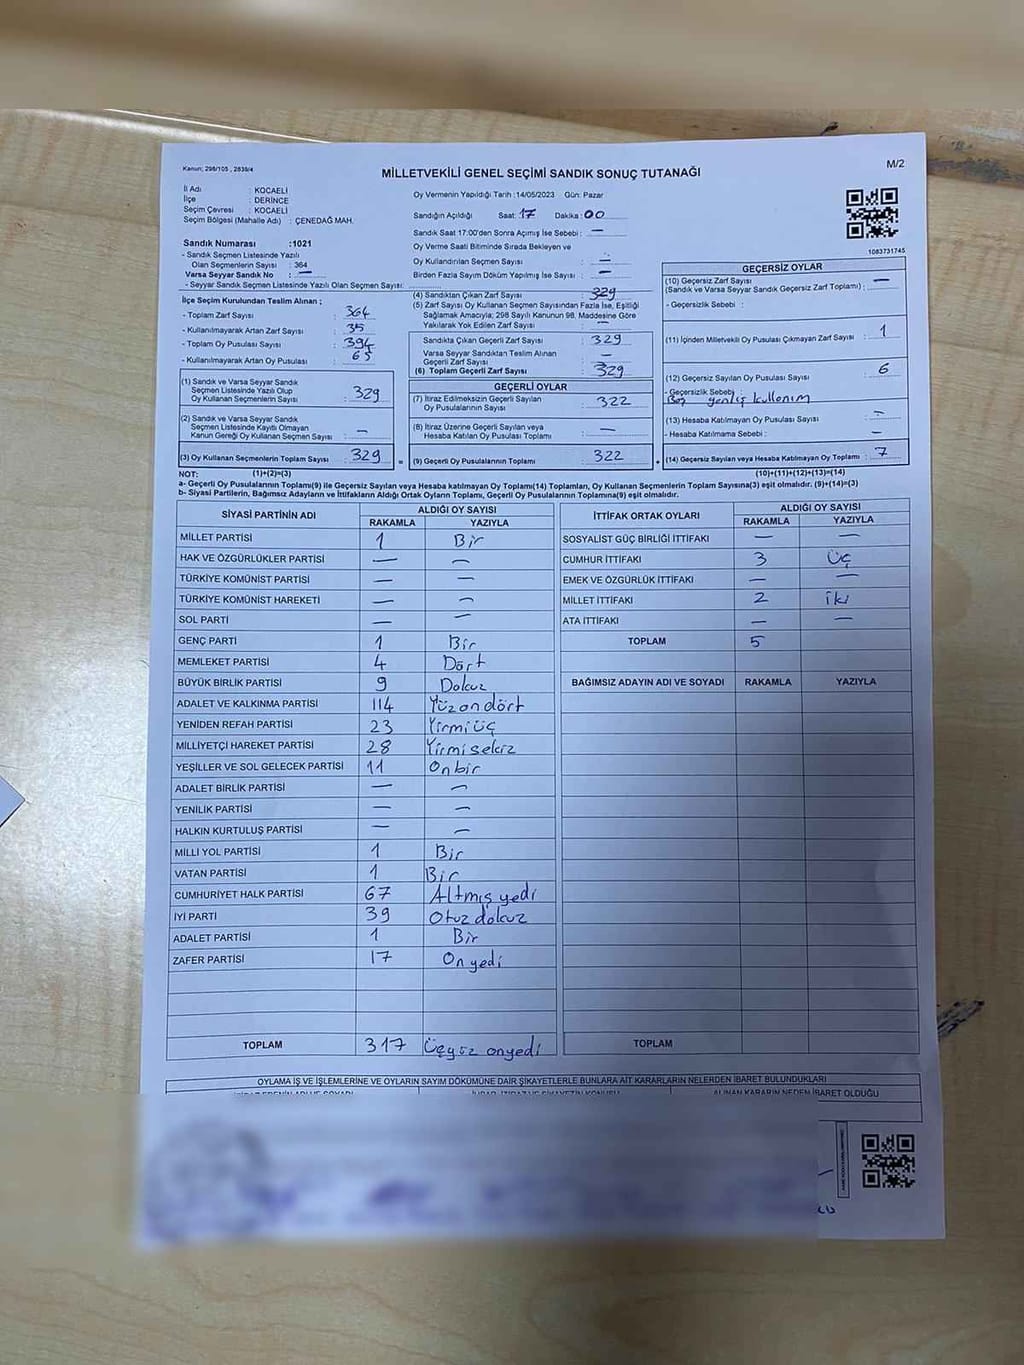 Kanun; 298/105 , 2839/4
M/2
MİLLETVEKİLİ GENEL SEÇİMİ SANDIK SONUÇ TUTANAĞI
İl Adı : KOCAELİ
İlçe : DERİNCE
Seçim Çevresi : KOCAELİ
Seçim Bölgesi (Mahalle Adı) : ÇENEDAĞ MAH.
Sandık Numarası :1021
- Sandık Seçmen Listesinde Yazılı
Olan Seçmenlerin Sayısı : 364
Varsa Seyyar Sandık No : —
- Seyyar Sandık Seçmen Listesinde Yazılı Olan Seçmen Sayısı:
Oy Vermenin Yapıldığı Tarih :14/05/2023 Gün: Pazar
Sandığın Açıldığı Saat: 17 Dakika: 00
Sandık Saat 17:00'den Sonra Açımış İse Sebebi : —
Oy Verme Saati Bitiminde Sırada Bekleyen ve
Oy Kullandırılan Seçmen Sayısı : —
Birden Fazla Sayım Döküm Yapılmış İse Sayısı : —
1083731745
İlçe Seçim Kurulundan Teslim Alınan ;
- Toplam Zarf Sayısı : 364
- Kullanılmayarak Artan Zarf Sayısı : 35
- Toplam Oy Pusulası Sayısı : 394
- Kullanılmayarak Artan Oy Pusulası : 65
(1) Sandık ve Varsa Seyyar Sandık
Seçmen Listesinde Yazılı Olup
Oy Kullanan Seçmenlerin Sayısı : 329
(2) Sandık ve Varsa Seyyar Sandık
Seçmen Listesinde Kayıtlı Olmayan
Kanun Gereği Oy Kullanan Seçmen Sayısı : —
(3) Oy Kullanan Seçmenlerin Toplam Sayısı : 329
(4) Sandıktan Çıkan Zarf Sayısı : 329
(5) Zarf Sayısı Oy Kullanan Seçmen Sayısından Fazla İse, Eşitliği
Sağlamak Amacıyla; 298 Sayılı Kanunun 98. Maddesine Göre
Yakılarak Yok Edilen Zarf Sayısı : —
Sandıkta Çıkan Geçerli Zarf Sayısı : 329
Varsa Seyyar Sandıktan Teslim Alınan
Geçerli Zarf Sayısı : —
(6) Toplam Geçerli Zarf Sayısı : 329
GEÇERLİ OYLAR
(7) İtiraz Edilmeksizin Geçerli Sayılan
Oy Pusulalarının Sayısı : 322
(8) İtiraz Üzerine Geçerli Sayılan veya
Hesaba Katılan Oy Pusulası Toplamı : —
= (9) Geçerli Oy Pusulalarının Toplamı : 322
GEÇERSİZ OYLAR
(10) Geçersiz Zarf Sayısı
(Sandık ve Varsa Seyyar Sandık Geçersiz Zarf Toplamı) : —
- Geçersizlik Sebebi :
(11) İçinden Milletvekili Oy Pusulası Çıkmayan Zarf Sayısı : 1
(12) Geçersiz Sayılan Oy Pusulası Sayısı : 6
- Geçersizlik Sebebi :
yanlış kullanım
(13) Hesaba Katılmayan Oy Pusulası Sayısı : —
- Hesaba Katılmama Sebebi : —
+ (14) Geçersiz Sayılan veya Hesaba Katılmayan Oy Toplamı : 7
NOT: (1)+(2)=(3) (10)+(11)+(12)+(13)=(14)
a- Geçerli Oy Pusulalarının Toplamı(9) ile Geçersiz Sayılan veya Hesaba katılmayan Oy Toplamı(14) Toplamları, Oy Kullanan Seçmenlerin Toplam Sayısına(3) eşit olmalıdır. (9)+(14)=(3)
b- Siyasi Partilerin, Bağımsız Adayların ve İttifakların Aldığı Ortak Oyların Toplamı, Geçerli Oy Pusulalarının Toplamına(9) eşit olmalıdır.
SİYASİ PARTİNİN ADI ALDIĞI OY SAYISI
RAKAMLA YAZIYLA
MİLLET PARTİSİ 1 Bir
HAK VE ÖZGÜRLÜKLER PARTİSİ — —
TÜRKİYE KOMÜNİST PARTİSİ — —
TÜRKİYE KOMÜNİST HAREKETİ — —
SOL PARTİ — —
GENÇ PARTİ 1 Bir
MEMLEKET PARTİSİ 4 Dört
BÜYÜK BİRLİK PARTİSİ 9 Dokuz
ADALET VE KALKINMA PARTİSİ 114 Yüzondört
YENİDEN REFAH PARTİSİ 23 Yirmiüç
MİLLİYETÇİ HAREKET PARTİSİ 28 Yirmisekiz
YEŞİLLER VE SOL GELECEK PARTİSİ 11 Onbir
ADALET BİRLİK PARTİSİ — —
YENİLİK PARTİSİ — —
HALKIN KURTULUŞ PARTİSİ — —
MİLLİ YOL PARTİSİ 1 Bir
VATAN PARTİSİ 1 Bir
CUMHURİYET HALK PARTİSİ 67 Altmış yedi
İYİ PARTİ 39 Otuz dokuz
ADALET PARTİSİ 1 Bir
ZAFER PARTİSİ 17 On yedi
TOPLAM 317 Üçyüz onyedi
İTTİFAK ORTAK OYLARI ALDIĞI OY SAYISI
RAKAMLA YAZIYLA
SOSYALİST GÜÇ BİRLİĞİ İTTİFAKI — —
CUMHUR İTTİFAKI 3 Üç
EMEK VE ÖZGÜRLÜK İTTİFAKI — —
MİLLET İTTİFAKI 2 İki
ATA İTTİFAKI — —
TOPLAM 5
BAĞIMSIZ ADAYIN ADI VE SOYADI RAKAMLA YAZIYLA
TOPLAM
OYLAMA İŞ VE İŞLEMLERİNE VE OYLARIN SAYIM DÖKÜMÜNE DAİR ŞİKAYETLERLE BUNLARA AİT KARARLARIN NELERDEN İBARET BULUNDUKLARI
ALINAN KARARIN NEDEN İBARET OLDUĞU